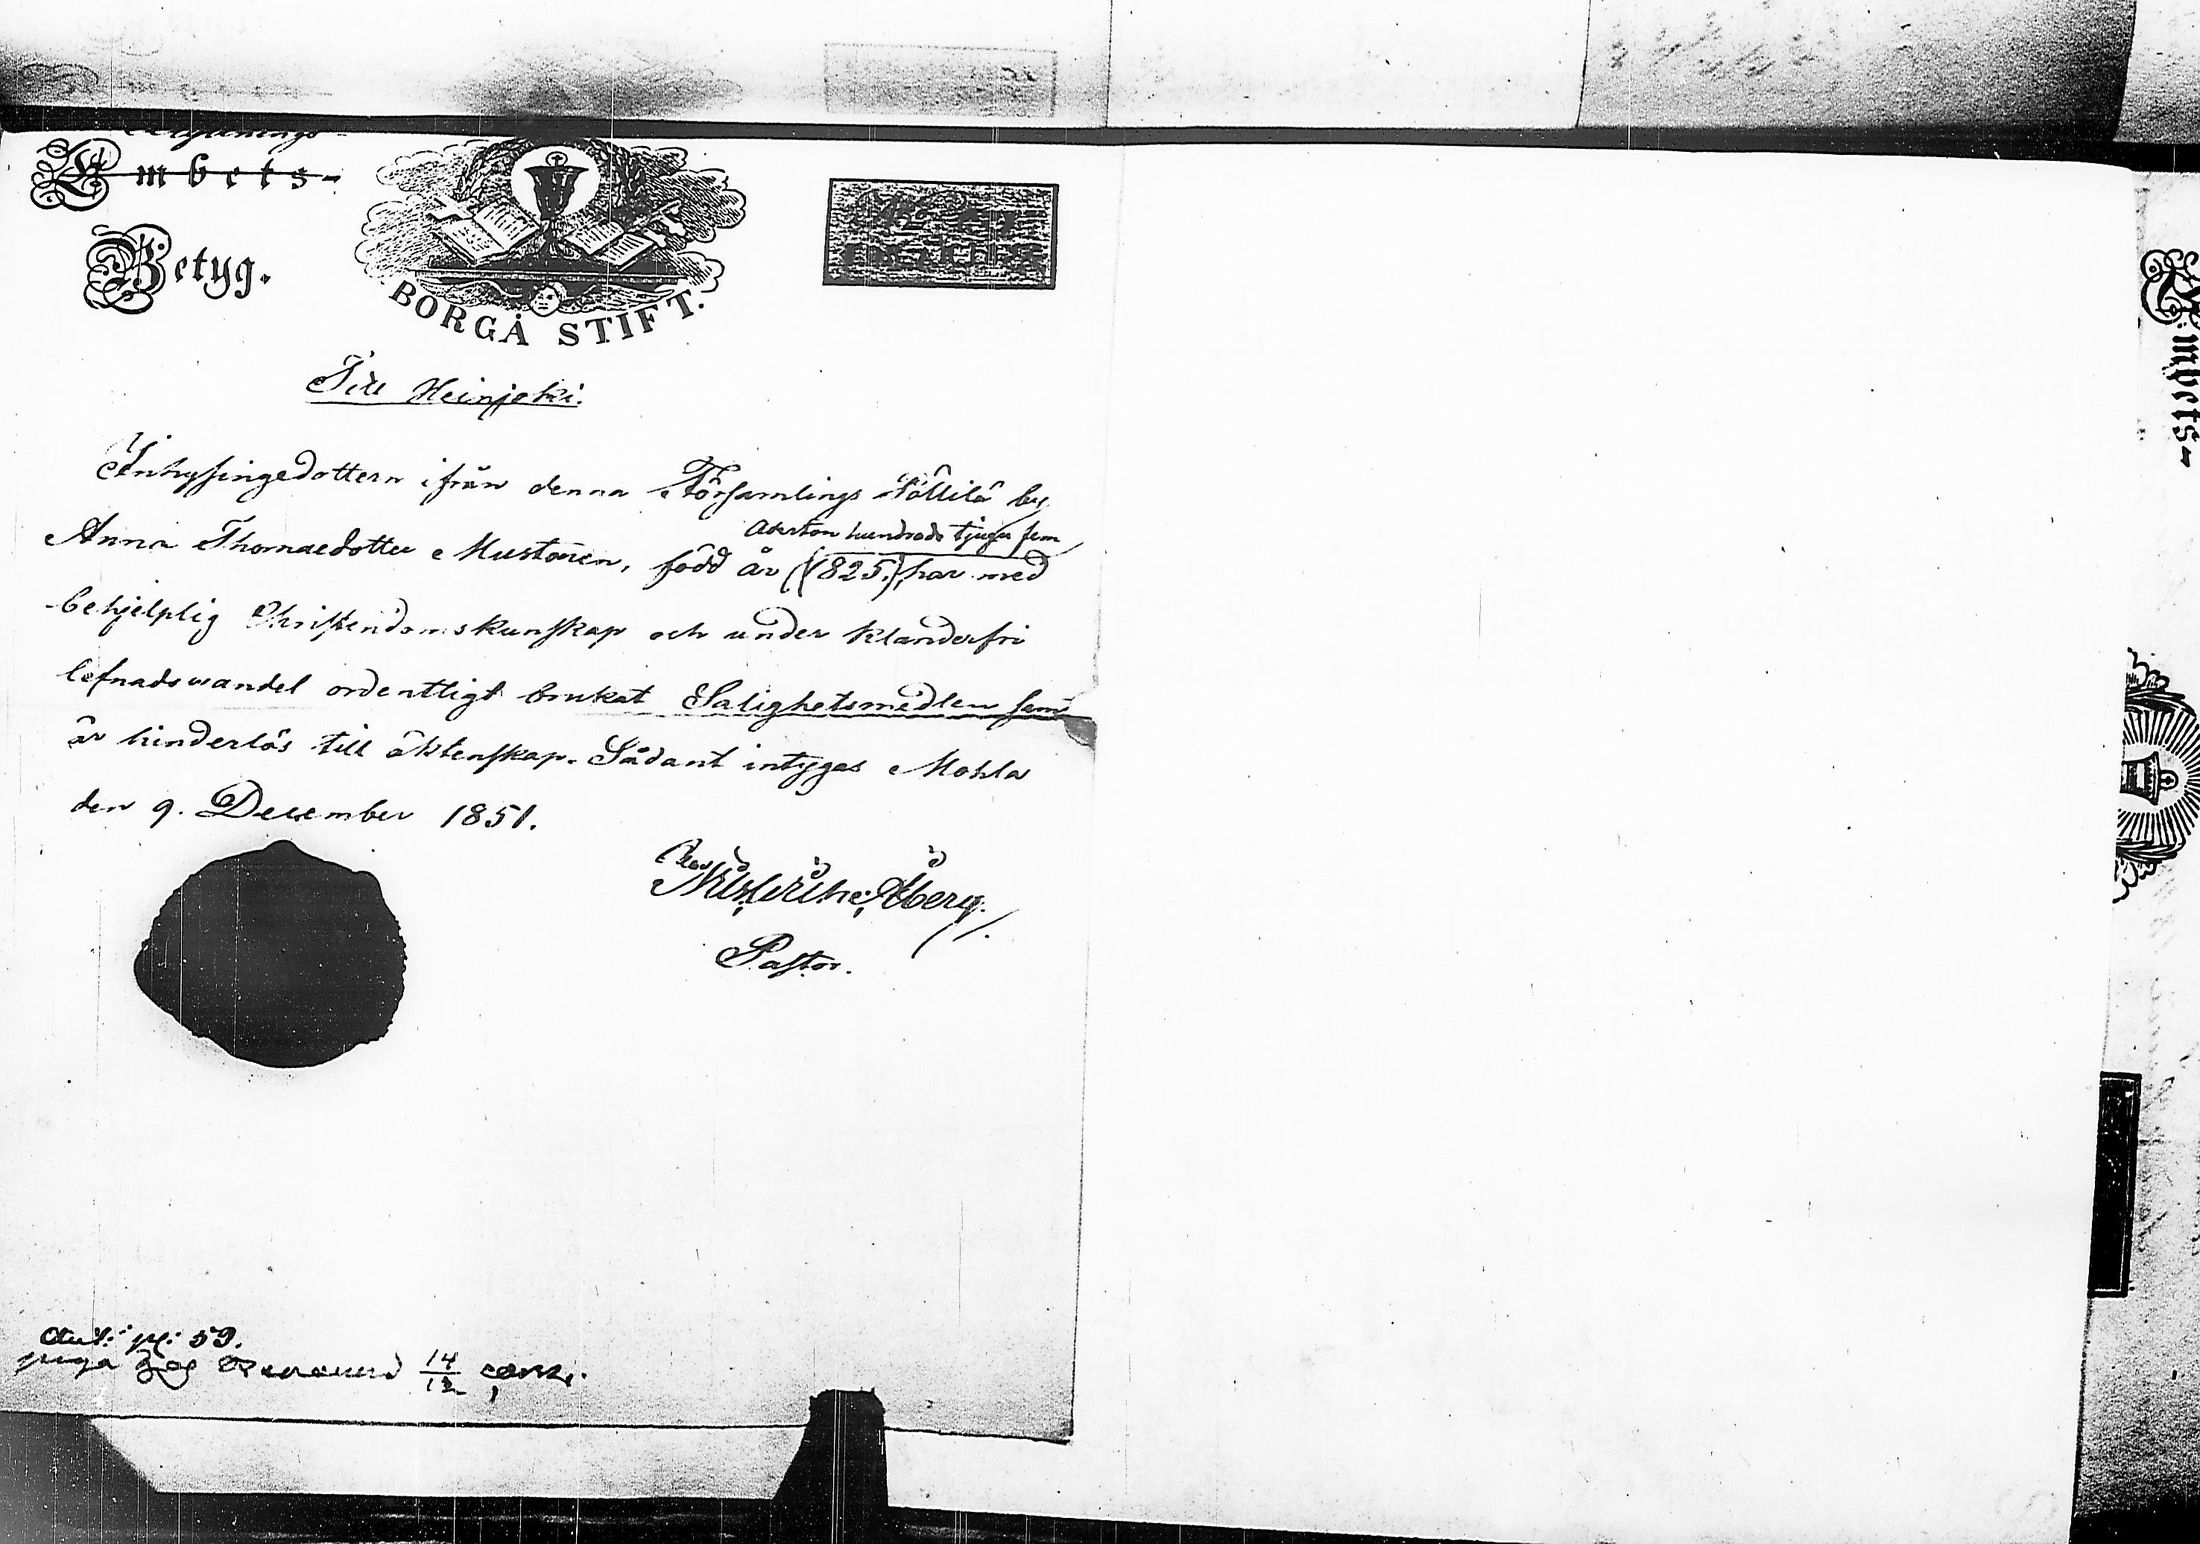 Embets-
Betyg.
BORGÅ STIFT.
Till Heinjoki.
Inhysingedottern ifrån denna Församlings Pöllilä by
aderton hundrade tjugu fem
Anna Thomaedotter Mustonen, född år (1825.) har med
behjelplig Christendomskunskap och under klanderfri
lefnadswandel ordentligt brukat Salighetsmedlen samt
är hinderlös till äktenskap. Sådant intygas Mohla
den 9. December 1851.
Åberg.
Pastor.
59.
14/12
Embets-